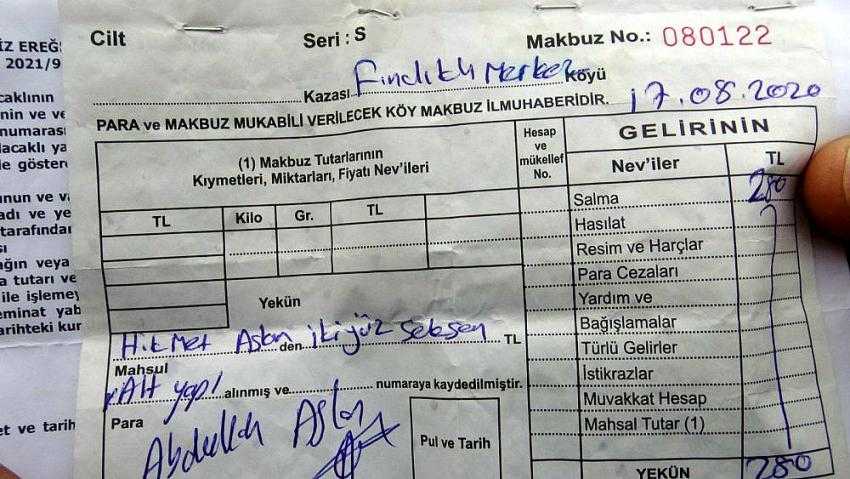 İZ EREĞ
2021/9
caklının
nin ve ve
numarası
lacaklı ya
le göster
unun ve va
adı ve ye
tarafından
sı
ağın veya
a tutarı ve
ile işlemey
eminat yab
arihteki kur
et ve tarih
Cilt Seri: S Makbuz No.: 080122
Kazası Fındıklı Merkez Köyü
PARA ve MAKBUZ MUKABİLİ VERİLECEK KÖY MAKBUZ İLMUHABERİDİR. 17.08.2020
(1) Makbuz Tutarlarının
Kıymetleri, Miktarları, Fiyatı Nev'ileri
Hesap
ve
mükellef
No.
GELİRİNİN
Nev'iler TL
TL Kilo Gr. TL
Salma 280
Hasılat
Resim ve Harçlar
Para Cezaları
Yardım ve
Bağışlamalar
Türlü Gelirler
İstikrazlar
Muvakkat Hesap
Mahsal Tutar (1)
YEKÜN 280
Yekün
Hikmet Aslan den iki yüz seksen TL
Mahsul
Alt yapı alınmış ve numaraya kaydedilmiştir.
Para
Abdullah Aslan
Pul ve Tarih